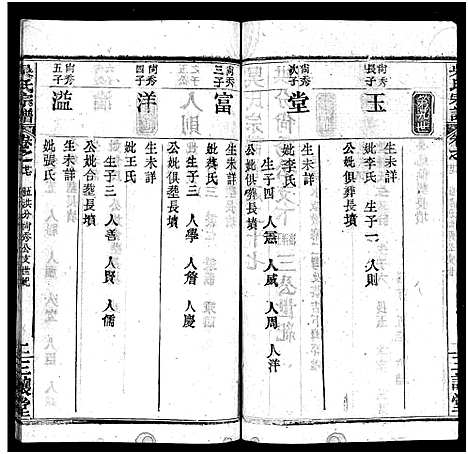 第九世
尚秀長子
玉
生未詳
妣李氏 生子一 人則
公妣俱葬長墳
尚秀次子
堂
生未詳
妣李氏 生子四 人憲 人威 人周 人洋
公妣俱葬長墳
尚秀三子
富
生未詳
妣蔡氏 生子三 人學 人詹 人慶
公妣俱塟長墳
尚秀四子
洋
生未詳
妣王氏 生子三 人善 人賢 人儒
公妣合塟長墳
尚秀五子
溢
生未詳
妣張氏
吳氏宗譜
三讓堂